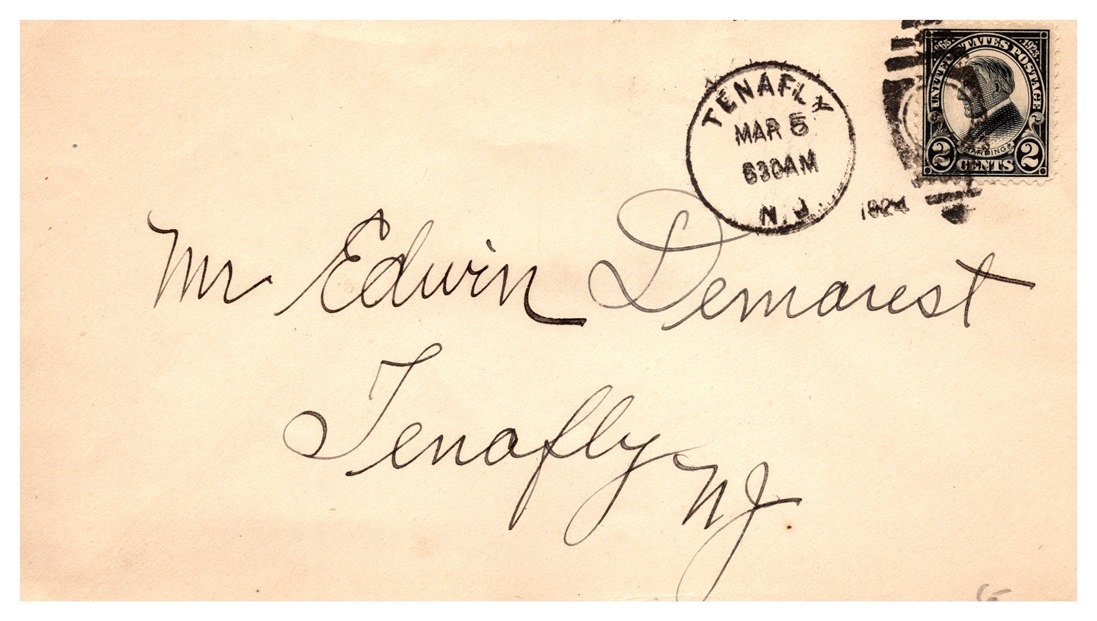 TENAFLY
MAR 5
630AM
N. J.
1924
1865 1923
UNITED STATES POSTAGE
HARDING
2 CENTS 2
Mr Edwin Demarest
Tenafly
NJ.